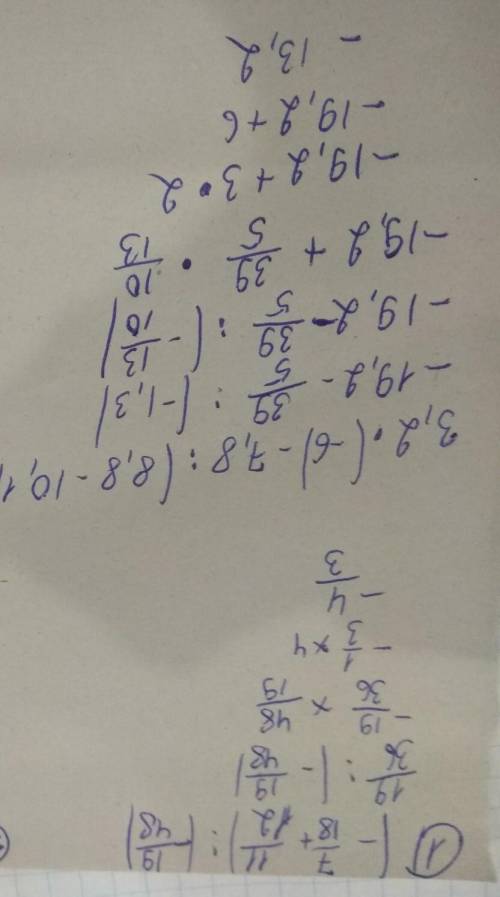 1) (-7/18 + 11/12) : (-19/48)
19/36 : (-19/48)
-19/36 × 48/19
-1/3 × 4
-4/3
3,2 · (-6) - 7,8 : (8,8 - 10,1
-19,2 - 39/5 : (-1,3)
-19,2 - 39/5 : (-13/10)
-19,2 + 39/5 · 10/13
-19,2 + 3 · 2
-19,2 + 6
-13,2